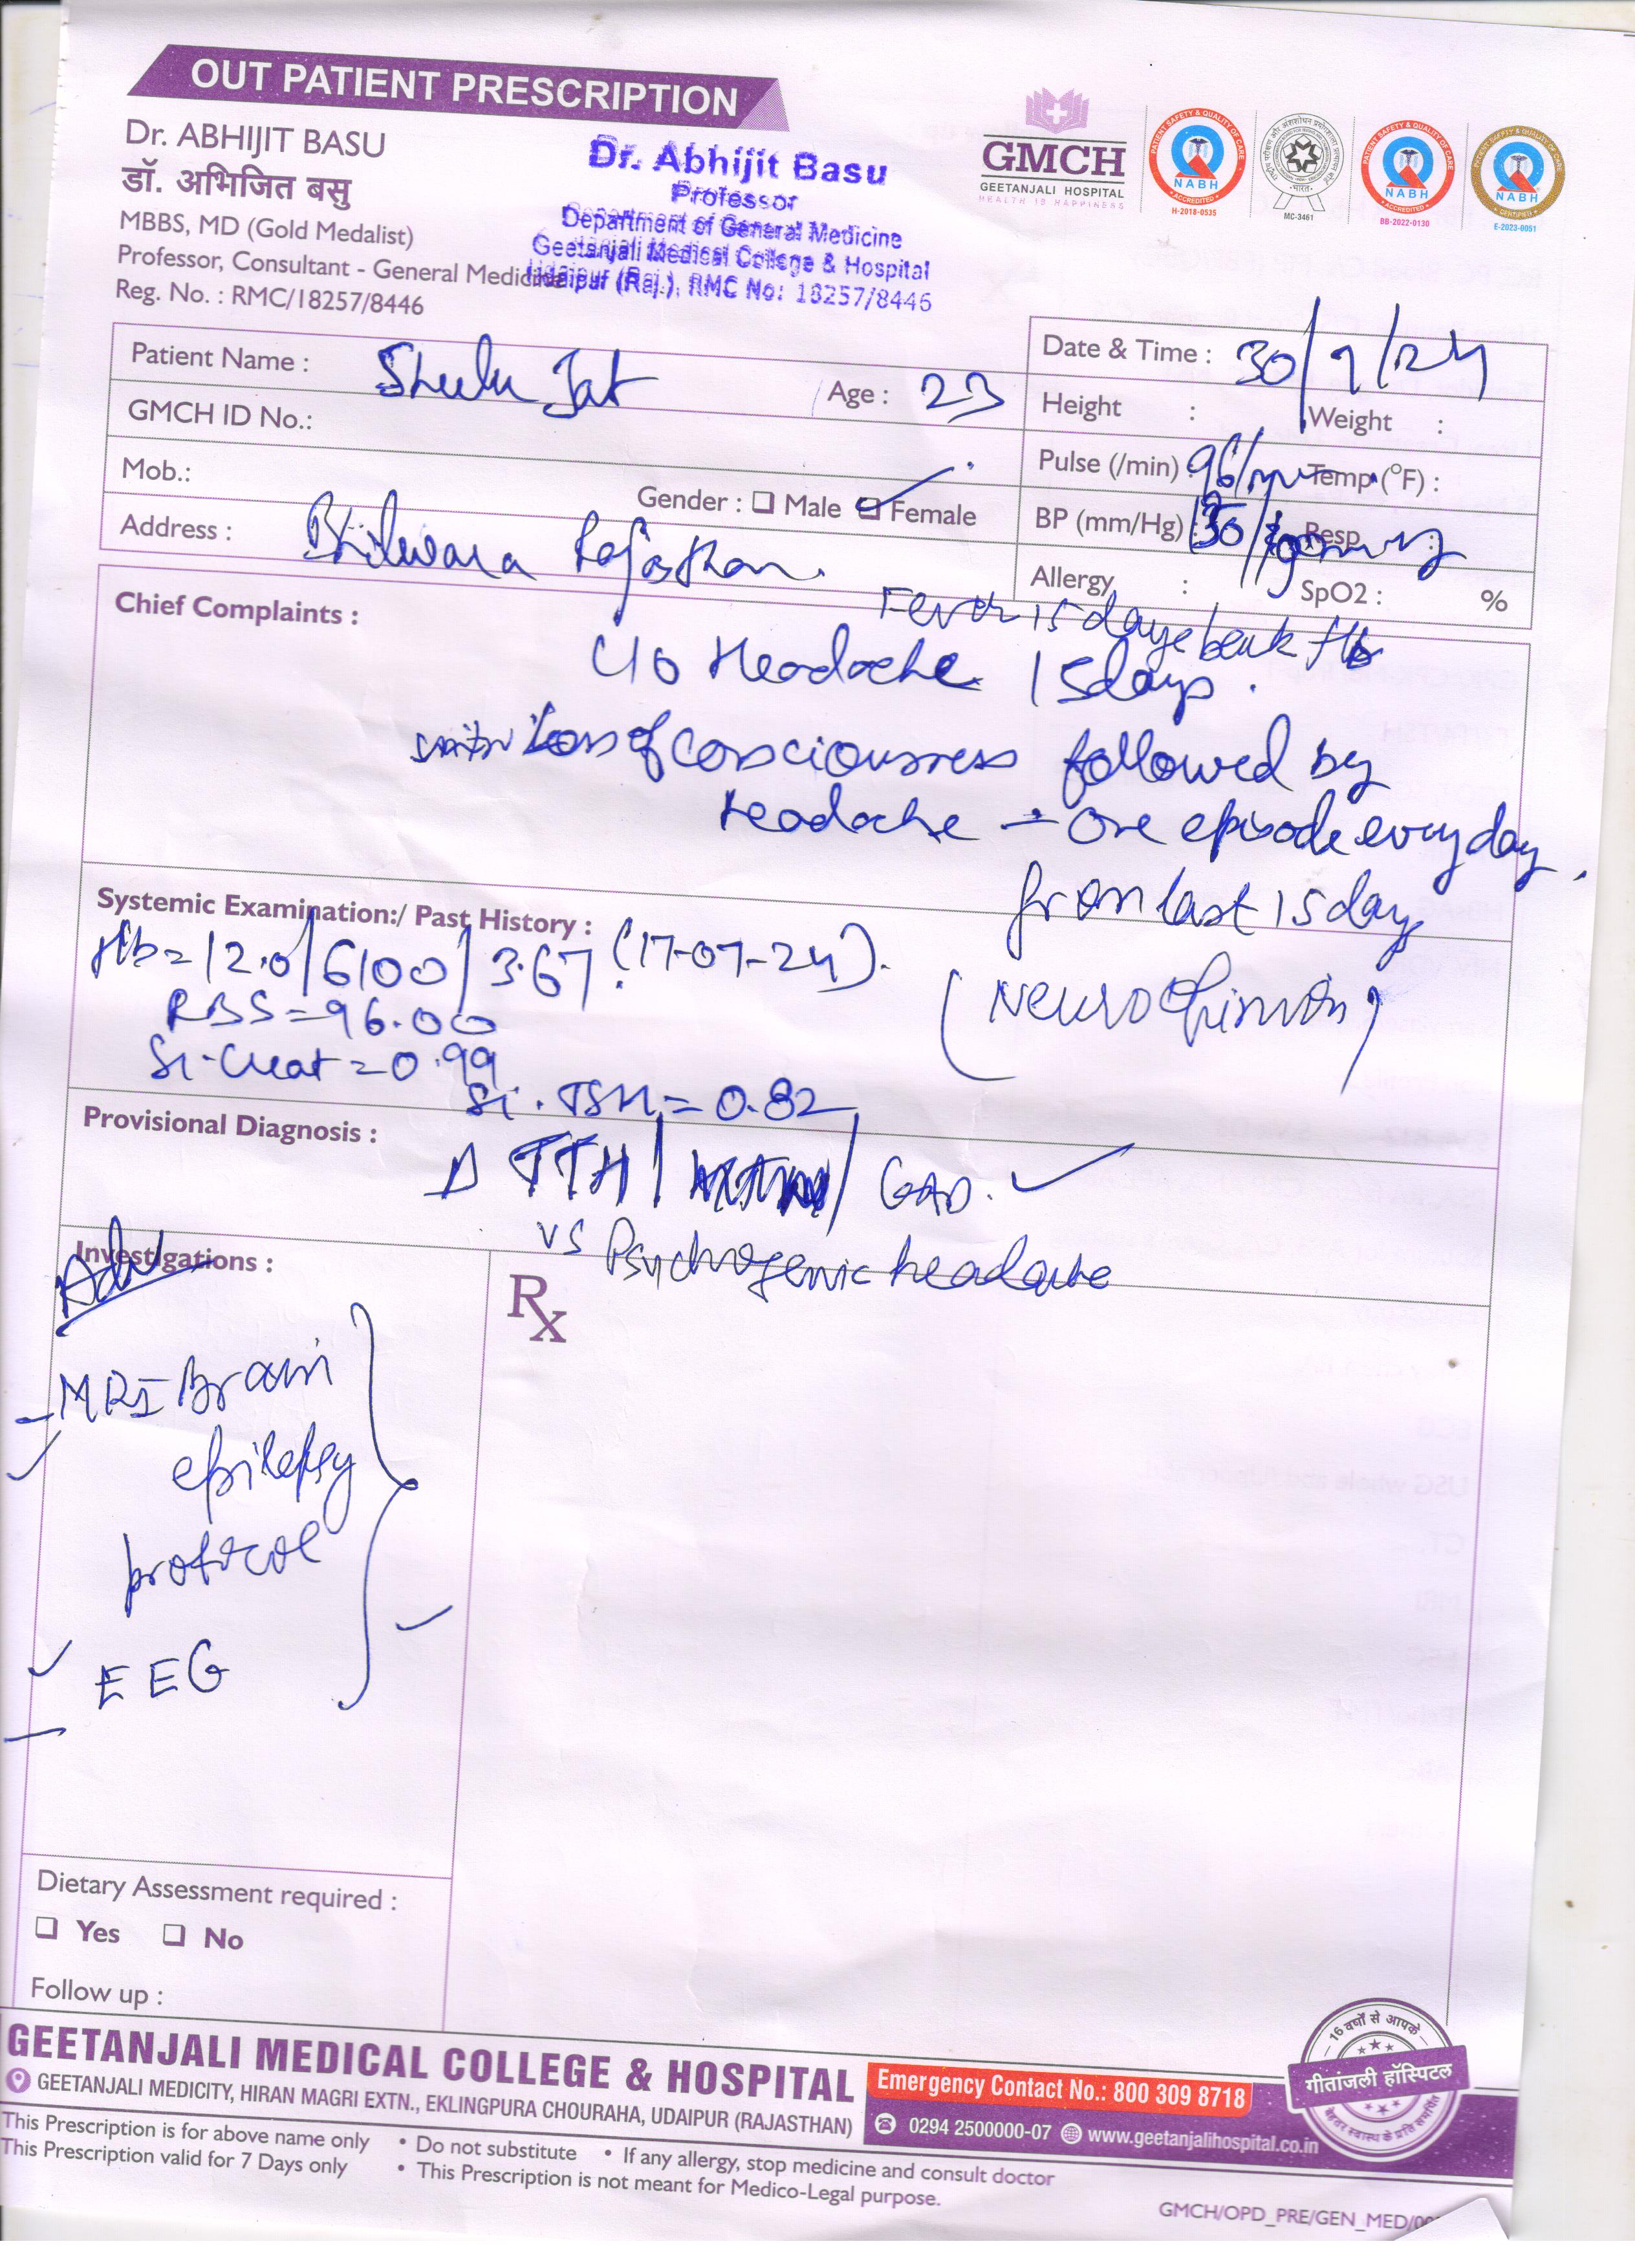 OUT PATIENT PRESCRIPTION
Dr. ABHIJIT BASU
डॉ. अभिजित बसु
MBBS, MD (Gold Medalist)
Professor, Consultant - General Medicine
Reg. No. : RMC/18257/8446
Dr. Abhijit Basu
Professor
Department of General Medicine
Geetanjali Medical College & Hospital
Udaipur (Raj.), RMC No: 18257/8446
GMCH
GEETANJALI HOSPITAL
HEALTH IS HAPPINESS
PATIENT SAFETY & QUALITY OF CARE
NABH
ACCREDITED
H-2018-0535
MC-3461
PATIENT SAFETY & QUALITY OF CARE
NABH
ACCREDITED
BB-2022-0130
NABH
CERTIFIED
E-2023-0051
Patient Name : Jat
Age : 23
Date & Time : 30/
GMCH ID No.:
Height : Weight :
Mob.:
Gender : Male Female
Pulse (/min) 96/ Temp (°F) :
Address : Bhilwara Rajasthan.
BP (mm/Hg) : Resp. :
Allergy : SpO2 : %
Chief Complaints :
Fever 15 days
C/o Headache 15days.
Loss of consciousness followed by
headache - one episode everyday.
from last 15 day
Systemic Examination:/ Past History :
Hb = 12.0/6100/3.67 (17-07-24).
RBS = 96.00
(Neuro Opinion)
Sr. Creat = 0.99
Sr. TSH = 0.82
Provisional Diagnosis :
Δ TTH / / GAD.
vs Psychogenic headache
Investigations :
Adv
Rx
- MRI Brain
epilepsy
protocol
EEG
Dietary Assessment required :
Yes No
Follow up :
16 वर्षों से आपके
गीतांजली हॉस्पिटल
GEETANJALI MEDICAL COLLEGE & HOSPITAL
GEETANJALI MEDICITY, HIRAN MAGRI EXTN., EKLINGPURA CHOURAHA, UDAIPUR (RAJASTHAN)
Emergency Contact No.: 800 309 8718
0294 2500000-07 www.geetanjalihospital.co.in
This Prescription is for above name only
This Prescription valid for 7 Days only
• Do not substitute • If any allergy, stop medicine and consult doctor
• This Prescription is not meant for Medico-Legal purpose.
GMCH/OPD_PRE/GEN_MED/